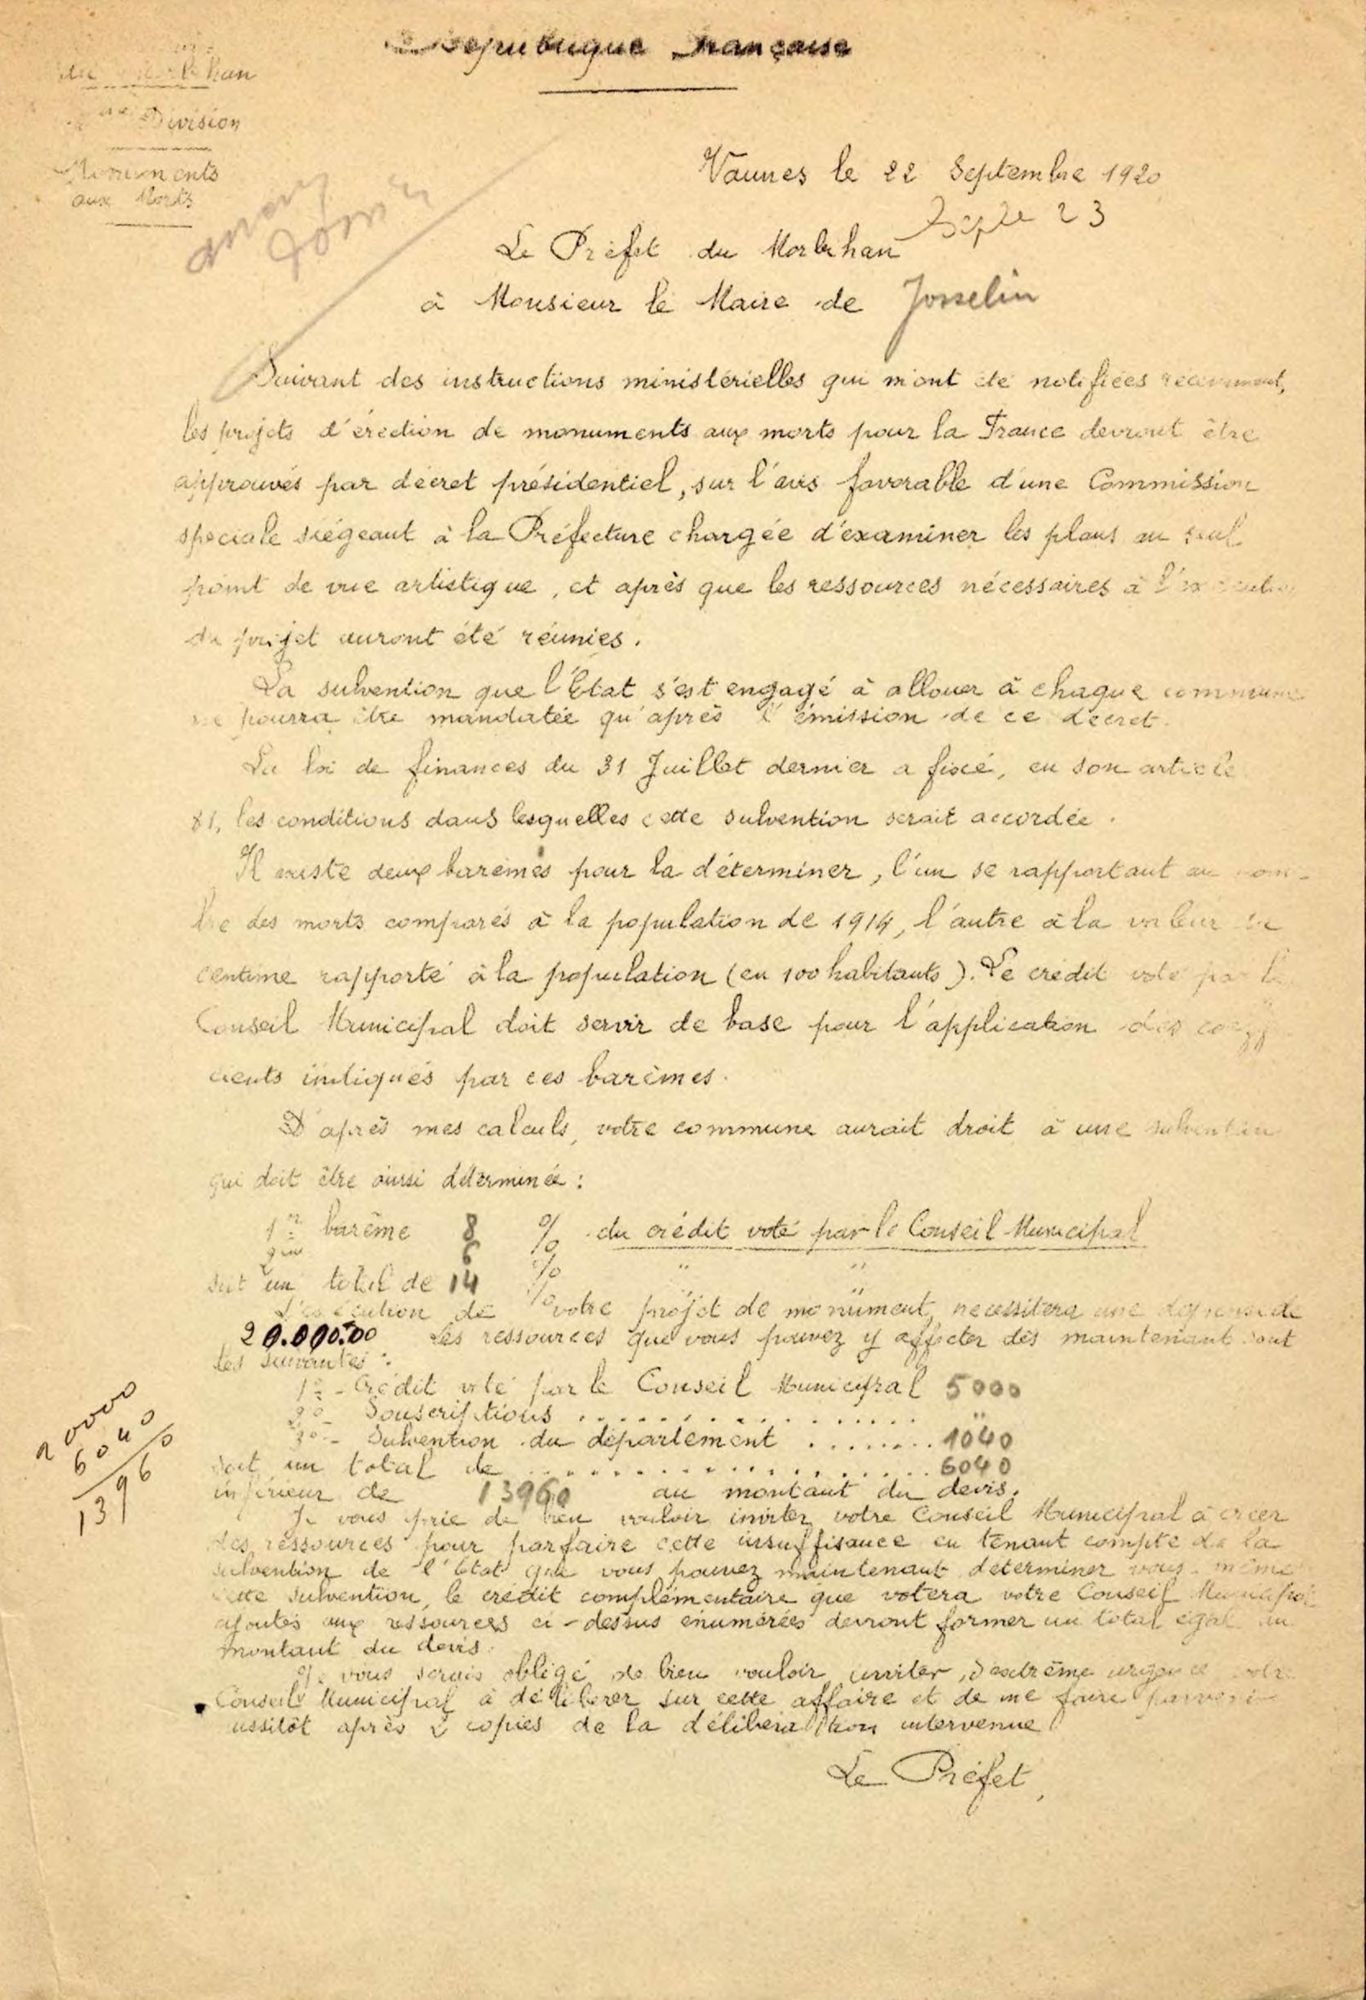 République Française
du Morbihan
Division
Monuments
aux Morts
Vannes le 22 Septembre 1920
23
Le Préfet du Morbihan
à Monsieur le Maire de Josselin
Suivant des instructions ministérielles qui m'ont été notifiées récemment,
les projets d'érection de monuments aux morts pour la France devront être
approuvés par décret présidentiel, sur l'avis favorable d'une Commission
spéciale siégeant à la Préfecture chargée d'examiner les plans au seul
point de vue artistique, et après que les ressources nécessaires à l'exécution
du projet auront été réunies.
La subvention que l'Etat s'est engagé à allouer à chaque commune
ne pourra être mandatée qu'après l'émission de ce décret.
La loi de finances du 31 Juillet dernier a fixé, en son article
81, les conditions dans lesquelles cette subvention serait accordée.
Il existe deux barèmes pour la déterminer, l'un se rapportant au nom-
bre des morts comparés à la population de 1914, l'autre à la valeur du
centime rapporté à la population (en 100 habitants). Le crédit voté par le
Conseil Municipal doit servir de base pour l'application des coeffi
cients indiqués par ces barèmes.
D'après mes calculs, votre commune aurait droit à une subvention
qui doit être ainsi déterminée :
1er barème 8 % du crédit voté par le Conseil Municipal
2me 6 % " "
soit un total de 14 % " "
L'exécution de votre projet de monument nécessitera une dépense de
20.000.00 Les ressources que vous pouvez y affecter dès maintenant sont
les suivantes :
1° - Crédit voté par le Conseil Municipal 5000
2° - Souscriptions .................. "
3° - Subvention du département ........ 1040
soit un total de ........................ 6040
inférieur de 13960 au montant du devis.
20000
6040
13960
Je vous prie de bien vouloir inviter votre Conseil Municipal à créer
des ressources pour parfaire cette insuffisance en tenant compte de la
subvention de l'Etat que vous pouvez maintenant déterminer vous-même
cette subvention, le crédit complémentaire que votera votre Conseil Municipal
ajoutés aux ressources ci-dessus énumérées devront former un total égal au
montant du devis.
Je vous serais obligé de bien vouloir inviter, d'extrême urgence votre
Conseil Municipal à délibérer sur cette affaire et de me faire parvenir
aussitôt après 2 copies de la délibération intervenue
Le Préfet,